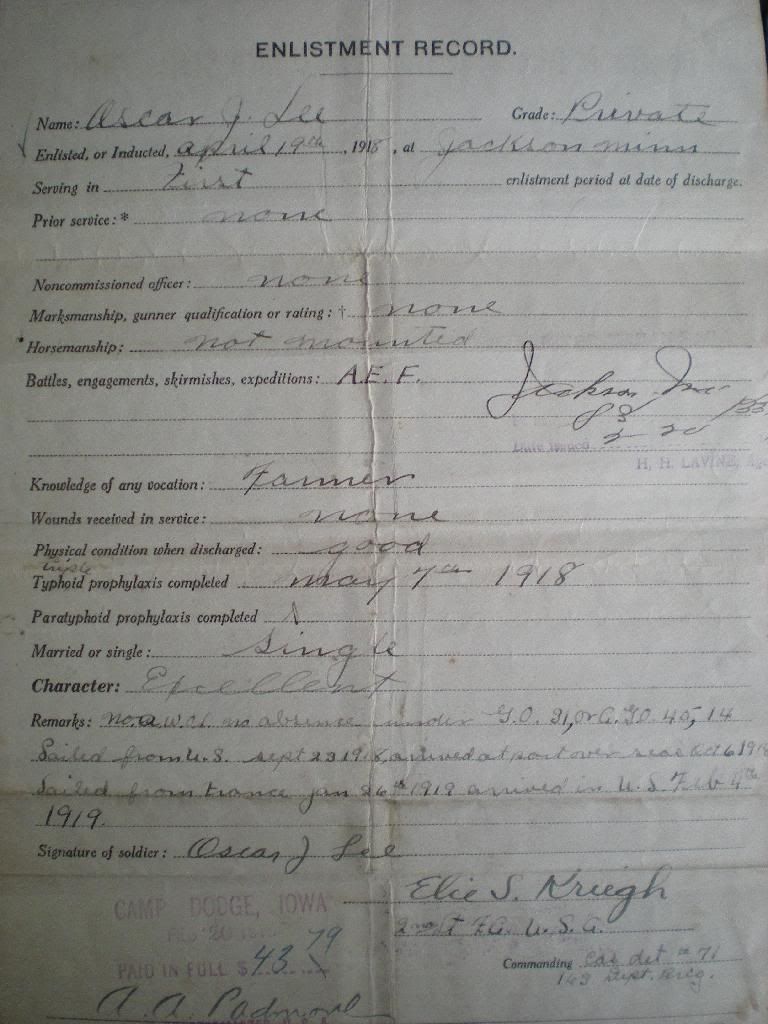 ENLISTMENT RECORD.
Name: Oscar J. Lee Grade: Private
Enlisted, or Inducted, April 19th, 1918, at Jackson Minn
Serving in First enlistment period at date of discharge.
Prior service: * none
Noncommissioned officer: none
Marksmanship, gunner qualification or rating: † none
Horsemanship: not mounted
Battles, engagements, skirmishes, expeditions: A.E.F.
Jackson
Date issued
H. H. LAVINE,
Knowledge of any vocation: Farmer
Wounds received in service: none
Physical condition when discharged: good
triple
Typhoid prophylaxis completed may 7th 1918
Paratyphoid prophylaxis completed
Married or single: Single
Character: Excellent
Remarks: no a w o l no absence under G.O. 31, or G.O. 45, 14
Sailed from U.S. sept 23 1918, arrived at port over seas Oct 6 1918
Sailed from France jan 26th 1919 arrived in U.S Feb 4th
1919.
Signature of soldier: Oscar J Lee
Elie S. Kriegh
CAMP DODGE, IOWA
2nd Lt F.A. U.S.A.
FEB 20
PAID IN FULL $ 43 79
Commanding Cas det # 71
163 Dept. Brig.
A. A. Padmore